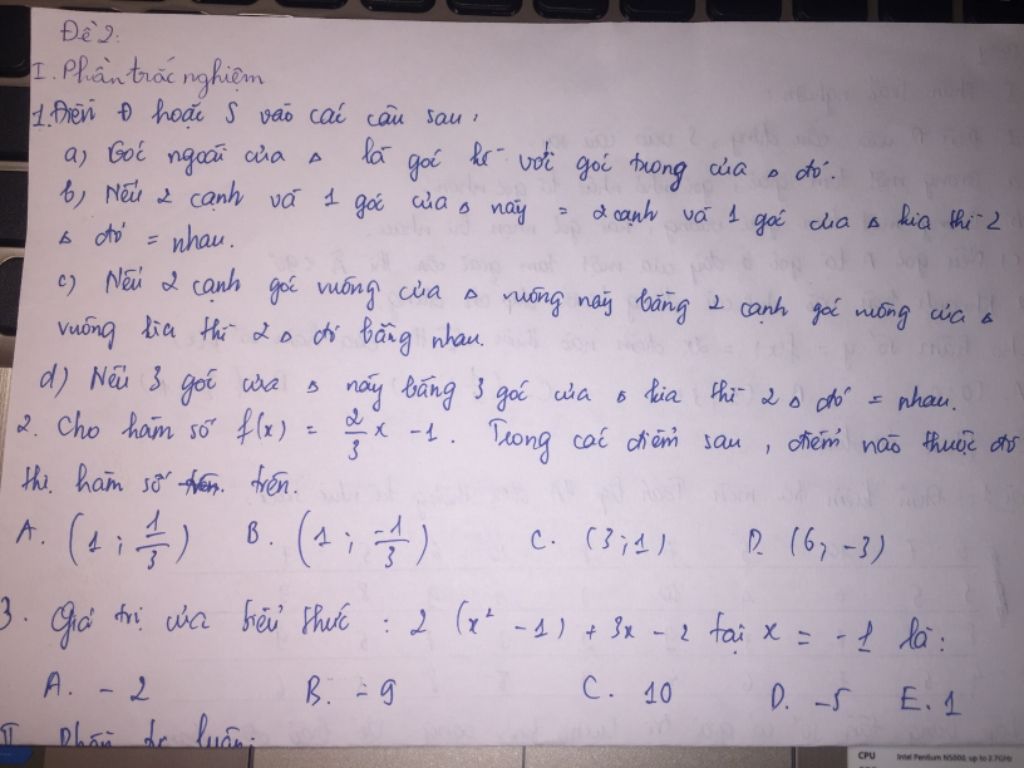 Đề 2:
I. Phần trắc nghiệm
1. Điền Đ hoặc S vào các câu sau:
a) Góc ngoài của Δ là góc kề với góc trong của Δ đó.
b) Nếu 2 cạnh và 1 góc của Δ này = 2 cạnh và 1 góc của Δ kia thì 2
Δ đó = nhau.
c) Nếu 2 cạnh góc vuông của Δ vuông này bằng 2 cạnh góc vuông của Δ
vuông kia thì 2 Δ đó bằng nhau.
d) Nếu 3 góc của Δ này bằng 3 góc của Δ kia thì 2 Δ đó = nhau.
2. Cho hàm số f(x) = 2/3 x - 1. Trong các điểm sau, điểm nào thuộc đồ
thị hàm số trên.
A. (1; 1/3) B. (1; -1/3) C. (3;1) D. (6; -3)
3. Giá trị của biểu thức: 2 (x² - 1) + 3x - 2 tại x = -1 là:
A. - 2 B. - 9 C. 10 D. -5 E. 1
II. Phần tự luận:
CPU Intel Pentium N5000, up to 2.7GHz